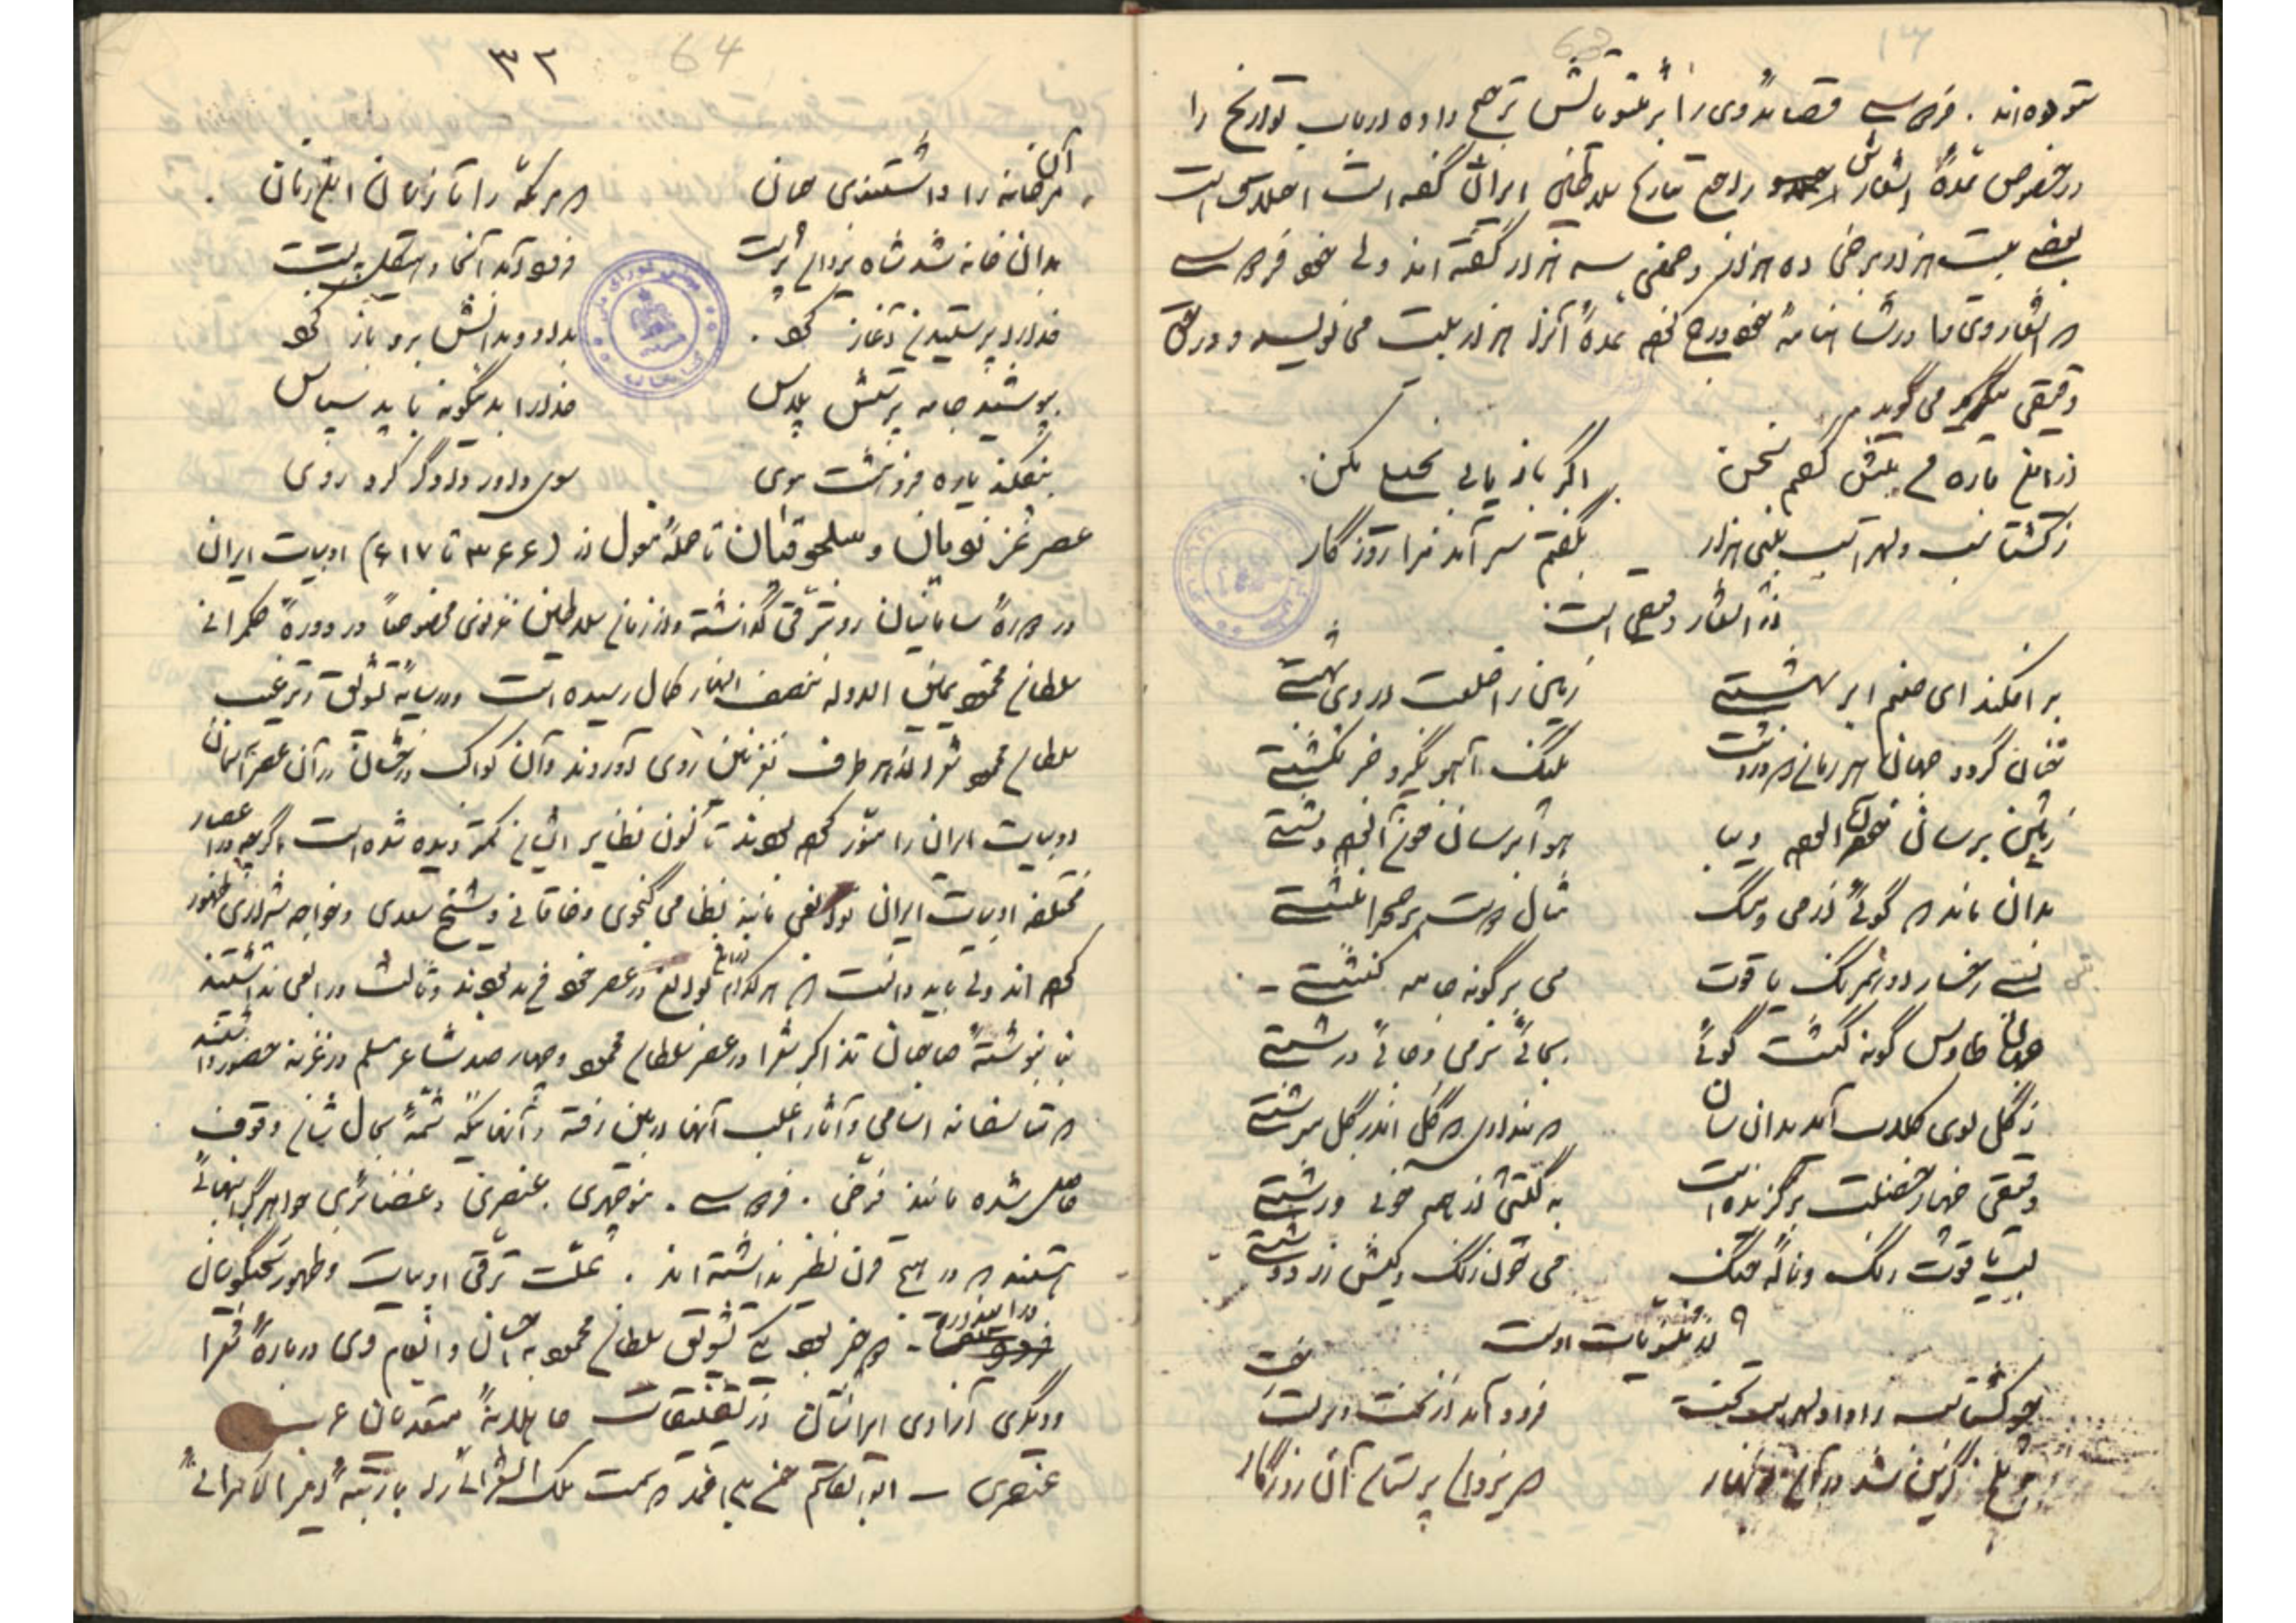 ستوده‌اند . فردوسی قصائد وی را بر مثنویاتش ترجیح داده در باب تواریخ را
در خصوص عدهٔ اشعارش راجع بتاریخ سلاطین ایران گفته است اختلاف است
بعضی بیست هزار برخی ده هزار و جمعی سه هزار گفته‌اند ولی خود فردوسی
که اشعار وی را در شاهنامهٔ خود درج کرده عدهٔ آنرا هزار بیت می نویسد و در حق
دقیقی می گوید
ازین باره من پیش گفتم سخن اگر باز یابی بخیلی مکن
ز گشتاسب و لهراسب بیتی هزار بگفتم سر آمد مرا روزگار
از اشعار دقیقی است
بر افکند ای صنم ابر بهشتی زمین را خلعت اردیبهشتی
چنان گردد جهان هزمان که در دشت پلنگ آهو نگیرد جز بکشتی
زمین برسان خون آلوده دیبا هوا برسان خون آلوده دشتی
بدان ماند که گوئی از می و مشک مثال دوست بر صحرا نبشتی
بتی رخسار او همرنگ یاقوت می بر گونه جامه کنشتی
جهان طاوس گونه گشت گوئی بجائی نرمی و جائی درشتی
ز گل بوی گلاب آید بدان سان که پنداری گل اندر گل سرشتی
دقیقی چهار خصلت برگزیده است به گیتی از همه خوبی و زشتی
لب یاقوت رنگ و نالهٔ چنگ می خون رنگ و کیش زردهشتی
از مثنویات اوست
چو گشتاسب را داد لهراسب تخت فرود آمد از تخت و بر بست رخت
ببلخ گزین شد بر آن نوبهار که یزدان پرستان آن روزگار
۳۲ 64
مر آن خانه را داشتندی چنان که مر مکه را تازیان این زمان
بدان خانه شد شاه یزدان پرست فرود آمد آنجا و هیکل ببست
خدا را پرستیدن آغاز کرد
بپوشید جامه پرستش پلاس خدا را بدینگونه باید سپاس
بیفکند یاره فرو هشت موی سوی داور دادگر کرد روی
عصر غزنویان و سلجوقیان تا حملهٔ مغول از (۳۶۶ تا ۶۱۷) ادبیات ایران
در دورهٔ سامانیان رو بترقی گذاشته و از زمان سلاطین غزنوی مخصوصاً در دورهٔ حکمرانی
سلطان محمود یمین الدوله بنصف النهار کمال رسیده است و در سایهٔ تشویق و ترغیب
سلطان محمود شعرا از هر طرف بغزنین روی آوردند و آن کواکب درخشان در آن عصر آسمان
ادبیات ایران را منور کرده بودند تا کنون نظایر ایشان کمتر دیده شده است اگرچه در اعصار
مختلفه ادبیات ایران نوابغی مانند نظامی گنجوی و خاقانی و شیخ سعدی و خواجه شیرازی ظهور
کرده اند ولی باید دانست که هر کدام از این نوابغ در عصر خود فرید بودند و ثالث و رابعی نداشتند
بنا بنوشتهٔ صاحبان تذاکر شعرا در عصر سلطان محمود چهار صد شاعر مسلم در غزنه حضور داشتند
که متاسفانه اسامی و آثار اغلب آنها از بین رفته و آنهائیکه شمهٔ بحال شان وقوف
حاصل شده مانند فرخی . فردوسی . منوچهری . عنصری و غضائری جواهر گرانبهائی
هستند که در هیچ قرن نظیر نداشته اند . علت ترقی ادبیات و ظهور سخنگویان
در این دوره دو چیز بود یکی تشویق سلطان محمود به احسان و انعام وی درباره شعرا
و دیگری آزادی ایرانیان از تضییقات جاهلانهٔ متعصبان عرب
عنصری ــ ابوالقاسم حسن بن احمد که سمت ملک الشعرائی را